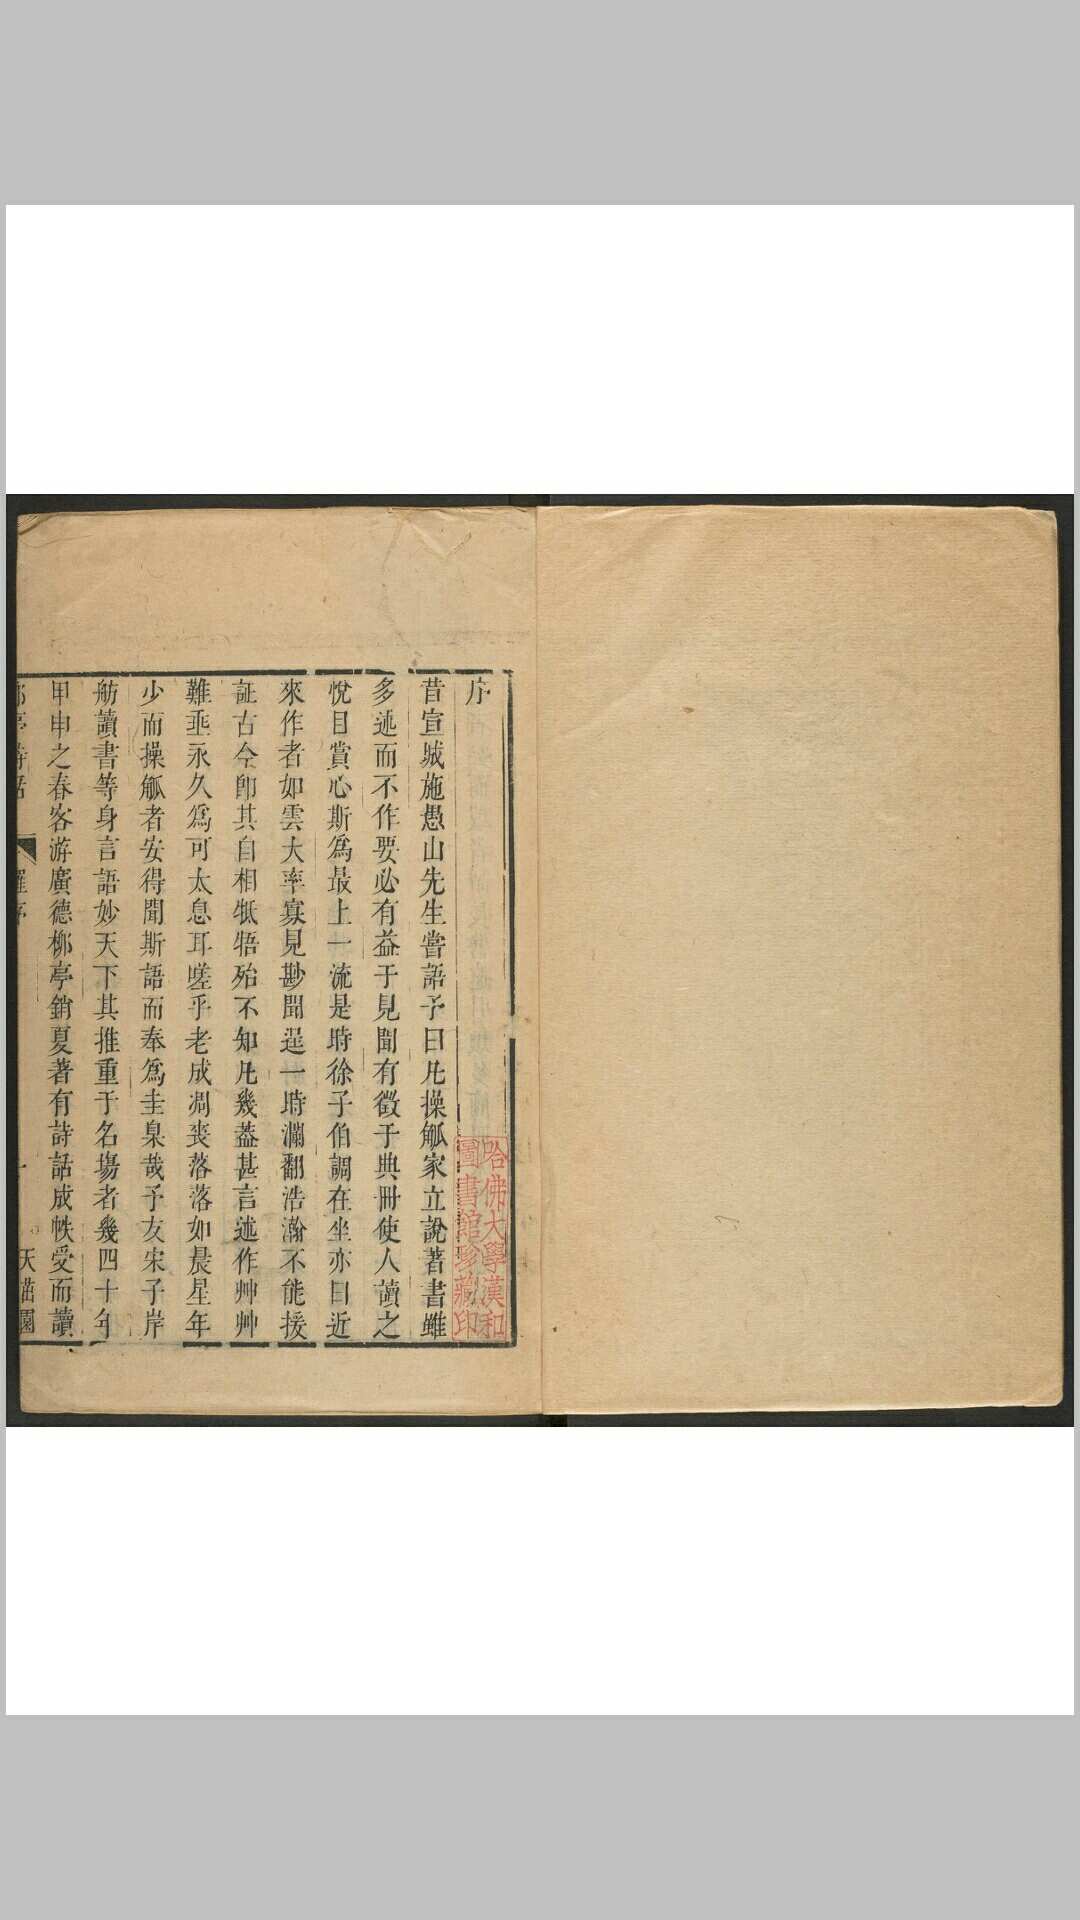 序
昔宣城施愚山先生嘗語予曰凡操觚家立說著書雖
多述而不作要必有益于見聞有徵于典冊使人讀之
悅目賞心斯爲最上一流是時徐子伯調在坐亦曰近
來作者如雲大率寡見尠聞逞一時瀾翻浩瀚不能援
証古今卽其自相牴牾殆不知凡幾葢甚言述作艸艸
難垂永久爲可太息耳嗟乎老成凋喪落落如晨星年
少而操觚者安得聞斯語而奉爲圭臬哉予友宋子岸
舫讀書等身言語妙天下其推重于名場者幾四十年
甲申之春客游廣德桞亭銷夏著有詩話成帙受而讀
亭詩話
序
天茁園
哈佛大學漢和
圖書館珍藏印